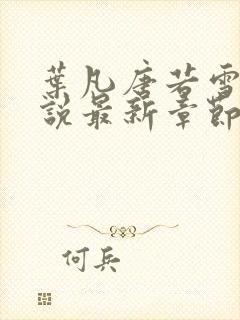 葉凡唐若雪
說最新章節
何兵